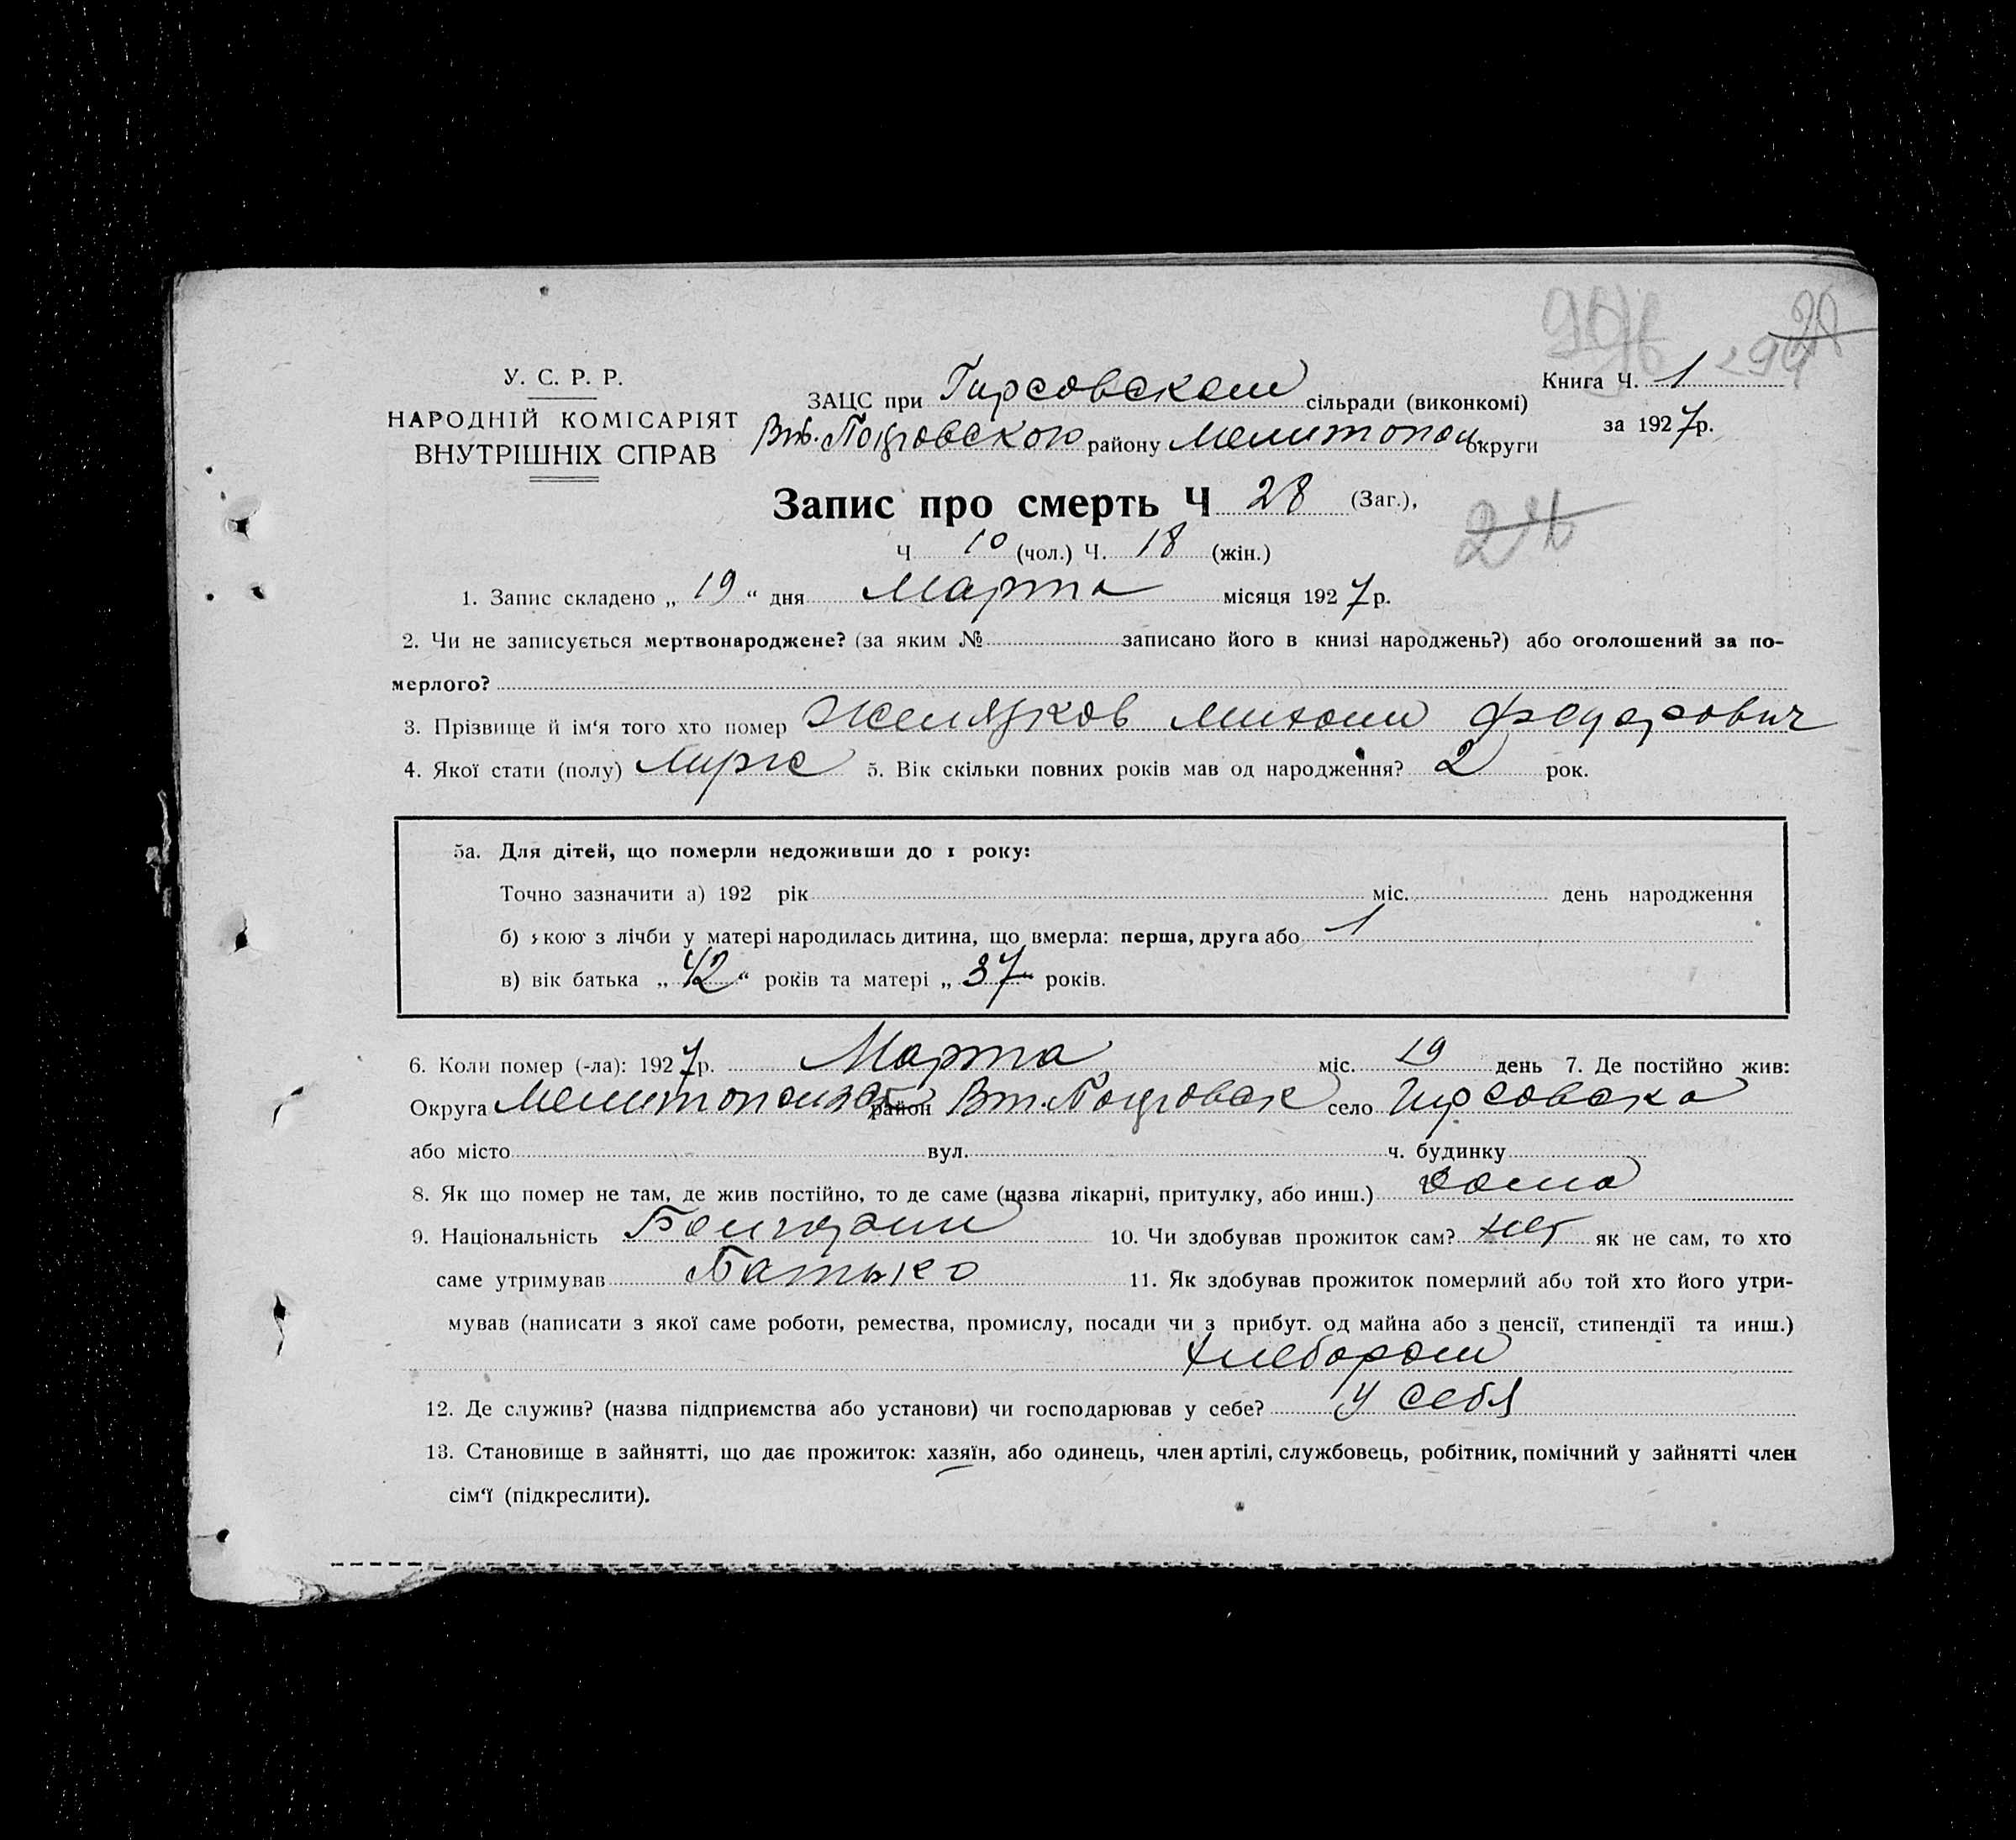 У. С. Р. Р.
НАРОДНІЙ КОМІСАРІЯТ
ВНУТРІШНІХ СПРАВ
Книга Ч. 1
за 1927 р.
ЗАЦС при Гирсовском сільради (виконкомі)
району Мелитопол. округи
Запис про смерть Ч 28 (Заг.),
Ч 10 (чол.) Ч. 18 (жін.)
1. Запис складено „ 19 “ дня Марта місяця 1927 р.
2. Чи не записується мертвонароджене? (за яким № записано його в книзі народжень?) або оголошений за по-
мерлого?
3. Прізвище й ім‘я того хто помер Желязков Михаил Федорович
4. Якої стати (полу) 5. Вік скільки повних років мав од народження? 2 рок.
5а. Для дітей, що померли недоживши до 1 року:
Точно зазначити а) 192 рік міс. день народження
б) якою з лічби у матері народилась дитина, що вмерла: перша, друга або 1
в) вік батька „ 42 “ років та матері „ 37 “ років.
6. Коли помер (-ла): 1927 р. Марта міс. 19 день 7. Де постійно жив:
Округа район село Гирсовка
або місто вул. ч. будинку
8. Як що помер не там, де жив постійно, то де саме (назва лікарні, притулку, або инш.) дома
9. Національність Болгарин 10. Чи здобував прожиток сам? нет як не сам, то хто
саме утримував Батько 11. Як здобував прожиток померлий або той хто його утри-
мував (написати з якої саме роботи, ремества, промислу, посади чи з прибут. од майна або з пенсії, стипендії та инш.)
хлебороб
12. Де служив? (назва підприємства або установи) чи господарював у себе? у себя
13. Становище в зайнятті, що дає прожиток: хазяїн, або одинець, член артілі, службовець, робітник, помічний у зайнятті член
сім‘ї (підкреслити).